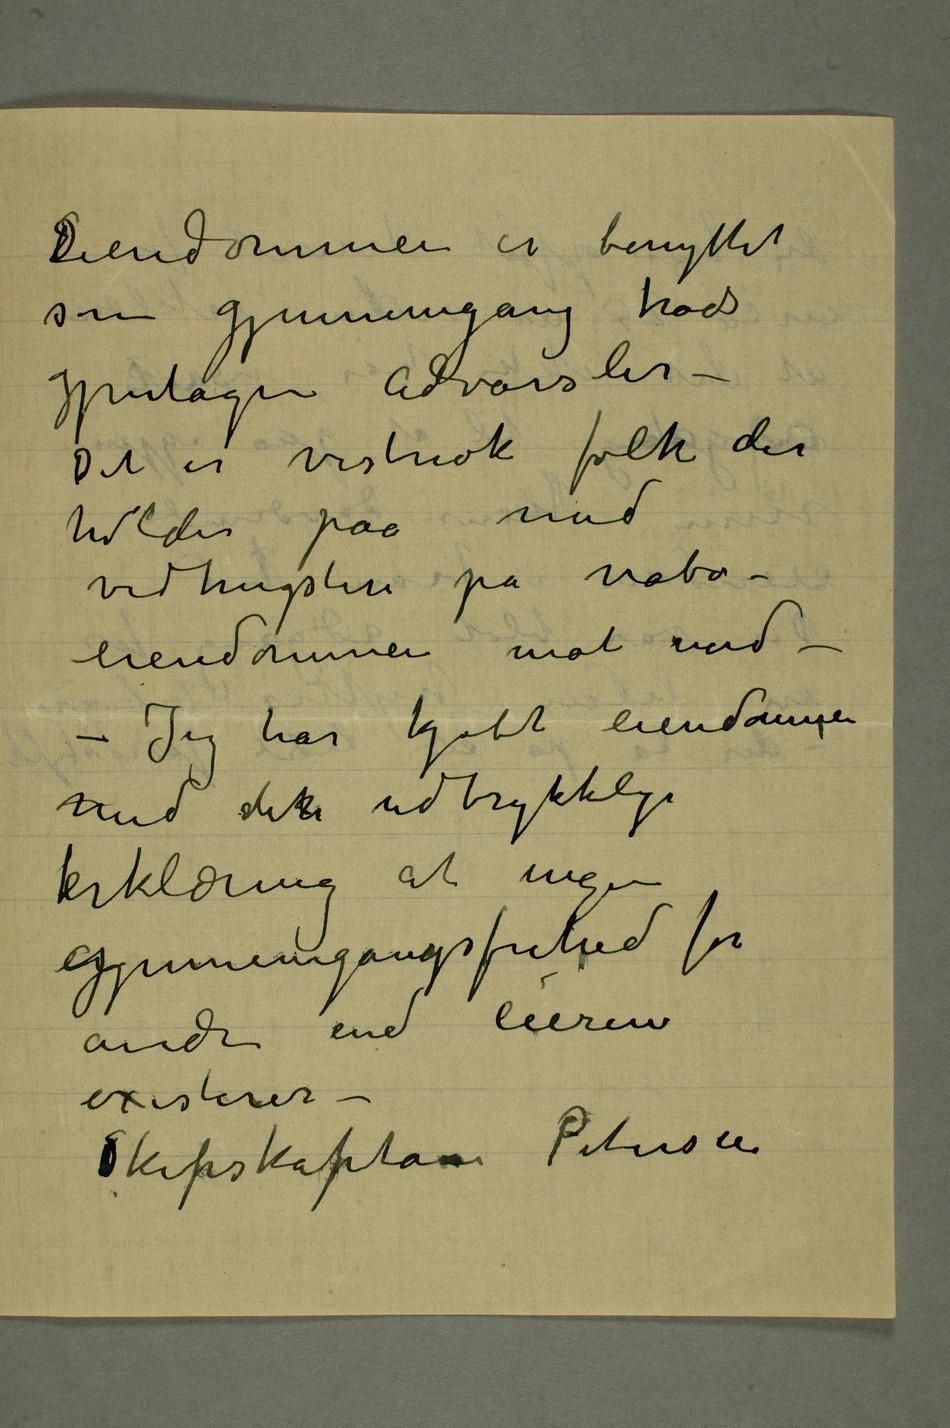 Eiendommen er benyttet
som gjennemgang trods
gjentagne Advarsler –
Det er vistnok folk der
holder paa med
vedhugsten på nabo-
eiendommen mot nord –
– Jeg har kjøbt eiendommen
med den udtrykkelige
erklæring at ingen
gjennemgangsfrihed for
andre end eieren
existerer –
Skipskaptan Petersen